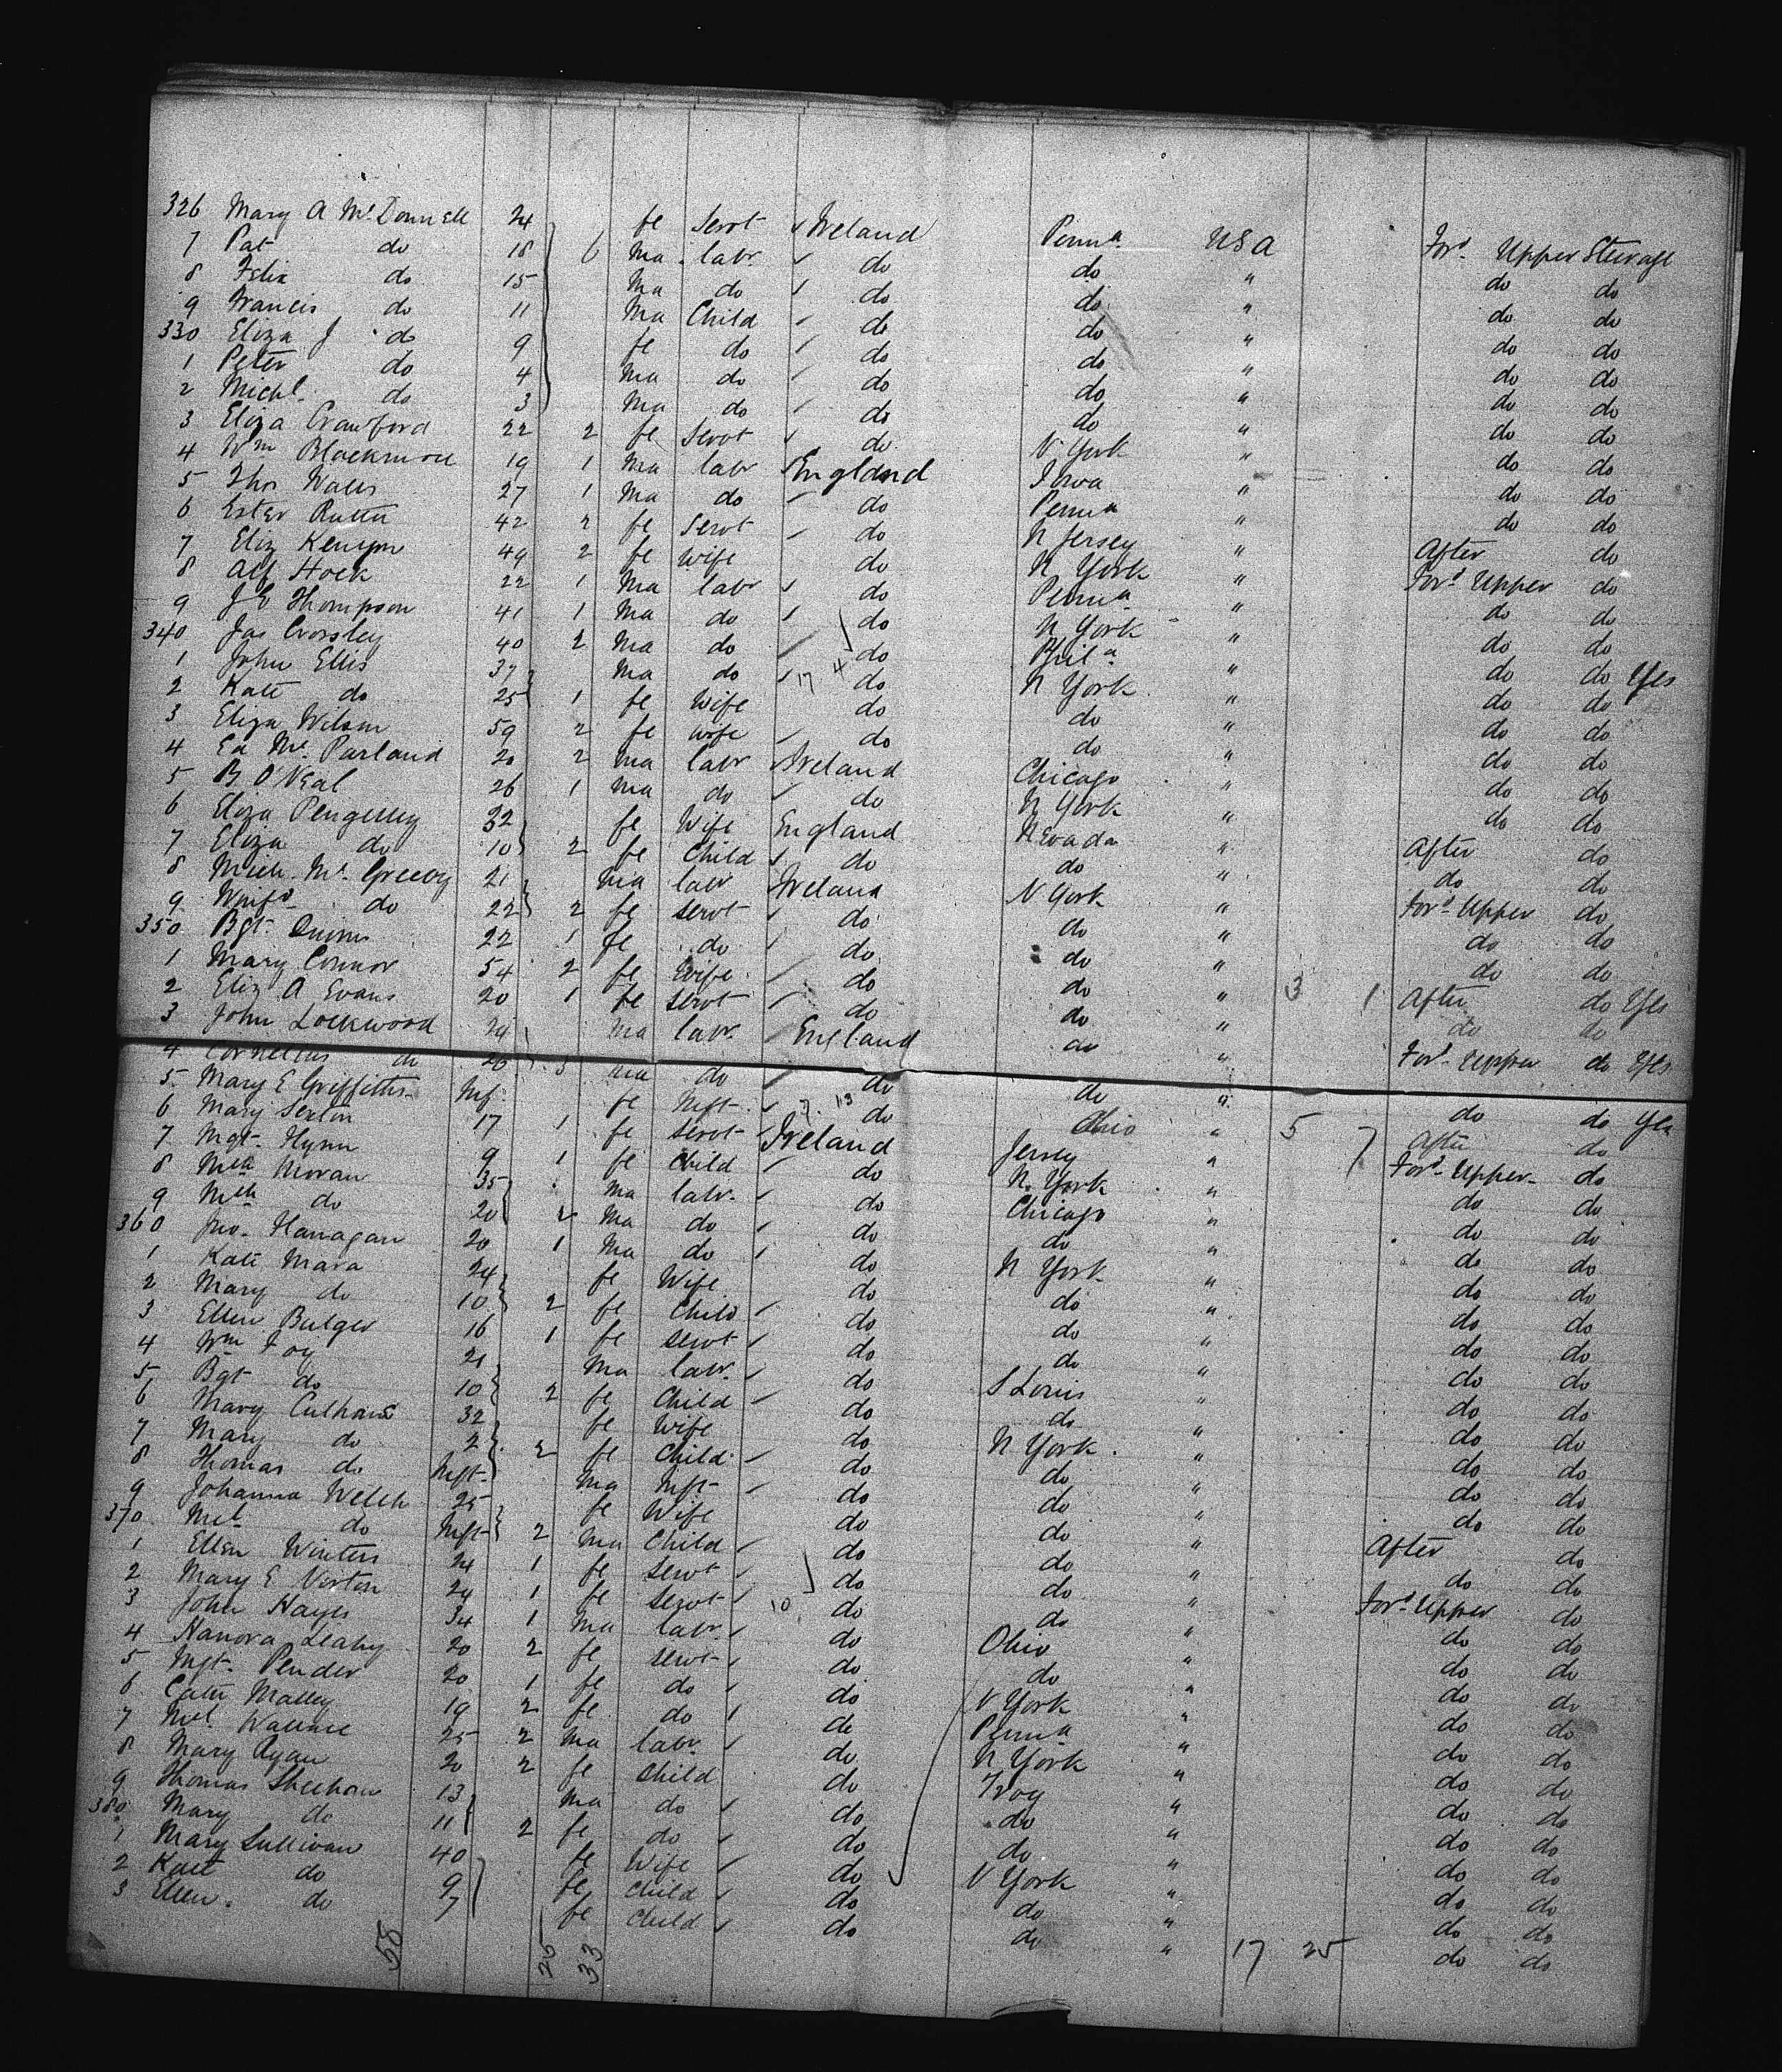 326 Mary A McDonnell 24 fe Servt Ireland Penna USA Ford Upper Steerage
7 Pat do 18 6 Ma labr do do " do do
8 Felix do 15 Ma do do do " do do
9 Francis do 11 Ma Child do do " do do
330 Eliza J do 9 fe do do do " do do
1 Peter do 4 Ma do do do " do do
2 Michl do 3 Ma do do do " do do
3 Eliza Crawford 22 2 fe Servt do N York " do do
4 Wm Blackmore 19 1 Ma labr England Iowa " do do
5 Thos Walls 27 1 Ma do do Penna " do do
6 Ester 42 2 fe Servt do N Jersey " After do
7 Eliz Kenyon 49 2 fe Wife do N York " Ford Upper do
8 Alf Hock 22 1 Ma labr do Penna " do do
9 J E Thompson 41 1 Ma do do N York " do do
340 Jas Crossley 40 2 Ma do do Phila " do do Yes
1 John Ellis 37 Ma do 17 4 do N York " do do
2 Kate do 25 1 fe Wife do do " do do
3 Eliza Wilson 59 2 fe Wife do do " do do
4 Ed McParland 20 2 Ma labr Ireland Chicago " do do
5 B O'Neal 26 1 Ma do do N York " do do
6 Eliza Pengelley 32 fe Wife England Nevada " After do
7 Eliza do 10 2 fe Child do do " do do
8 Mich McGreevy 21 Ma labr Ireland N York " Ford Upper do
9 Winifd do 22 2 fe Servt do do " do do
350 Bgt Quinn 22 1 fe do do do " do do
1 Mary Connor 54 2 fe Wife do do " 3 1 After do Yes
2 Eliz A Evans 20 1 fe Servt do do " do do
3 John Lockwood 24 Ma labr England do " Ford Upper do Yes
4 Cornelius do 26 Ma do do do " do do Yes
5 Mary E Griffiths Inf fe Inft do Ohio " 5 7 After do
6 Mary Sexton 17 1 fe Servt Ireland Jersey " Ford Upper do
7 Mgt Flynn 9 1 fe Child do N. York " do do
8 Moran 35 Ma labr do Chicago " do do
9 do 20 2 Ma do do do " do do
360 Jno. Flanagan 20 1 Ma do do N York " do do
1 Kate Mara 24 fe Wife do do " do do
2 Mary do 10 2 fe Child do do " do do
3 Ellen Bulger 16 1 fe Servt do do " do do
4 Wm Foy 21 Ma labr do S Louis " do do
5 Bgt do 10 2 fe Child do do " do do
6 Mary Culhane 32 fe Wife do N York " do do
7 Mary do 2 2 fe Child do do " do do
8 Thomas do Inft Ma Inft do do " do do
9 Johanna Welch 25 fe Wife do do " After do
370 Ml do Inft 2 Ma Child do do " do do
1 Ellen Winters 24 1 fe Servt do do " Ford Upper do
2 Mary E Norton 24 1 fe Servt 10 do do " do do
3 John Hayes 34 1 Ma labr do Ohio " do do
4 Hanora Leahy 20 2 fe Servt do do " do do
5 Mgt. Pender 20 1 fe do do N York " do do
6 Cath Malley 19 2 fe do do Penna " do do
7 Ml Wallace 25 2 Ma labr do N York " do do
8 Mary Ryan 20 2 fe Child do Troy " do do
9 Thomas Sheehan 13 Ma do do do " do do
380 Mary do 11 2 fe do do do " do do
1 Mary Sullivan 40 fe Wife do N York " do do
2 Kate do 9 fe Child do do " do do
3 Ellen do 7 fe Child do do " do do
58 25 33 17 25